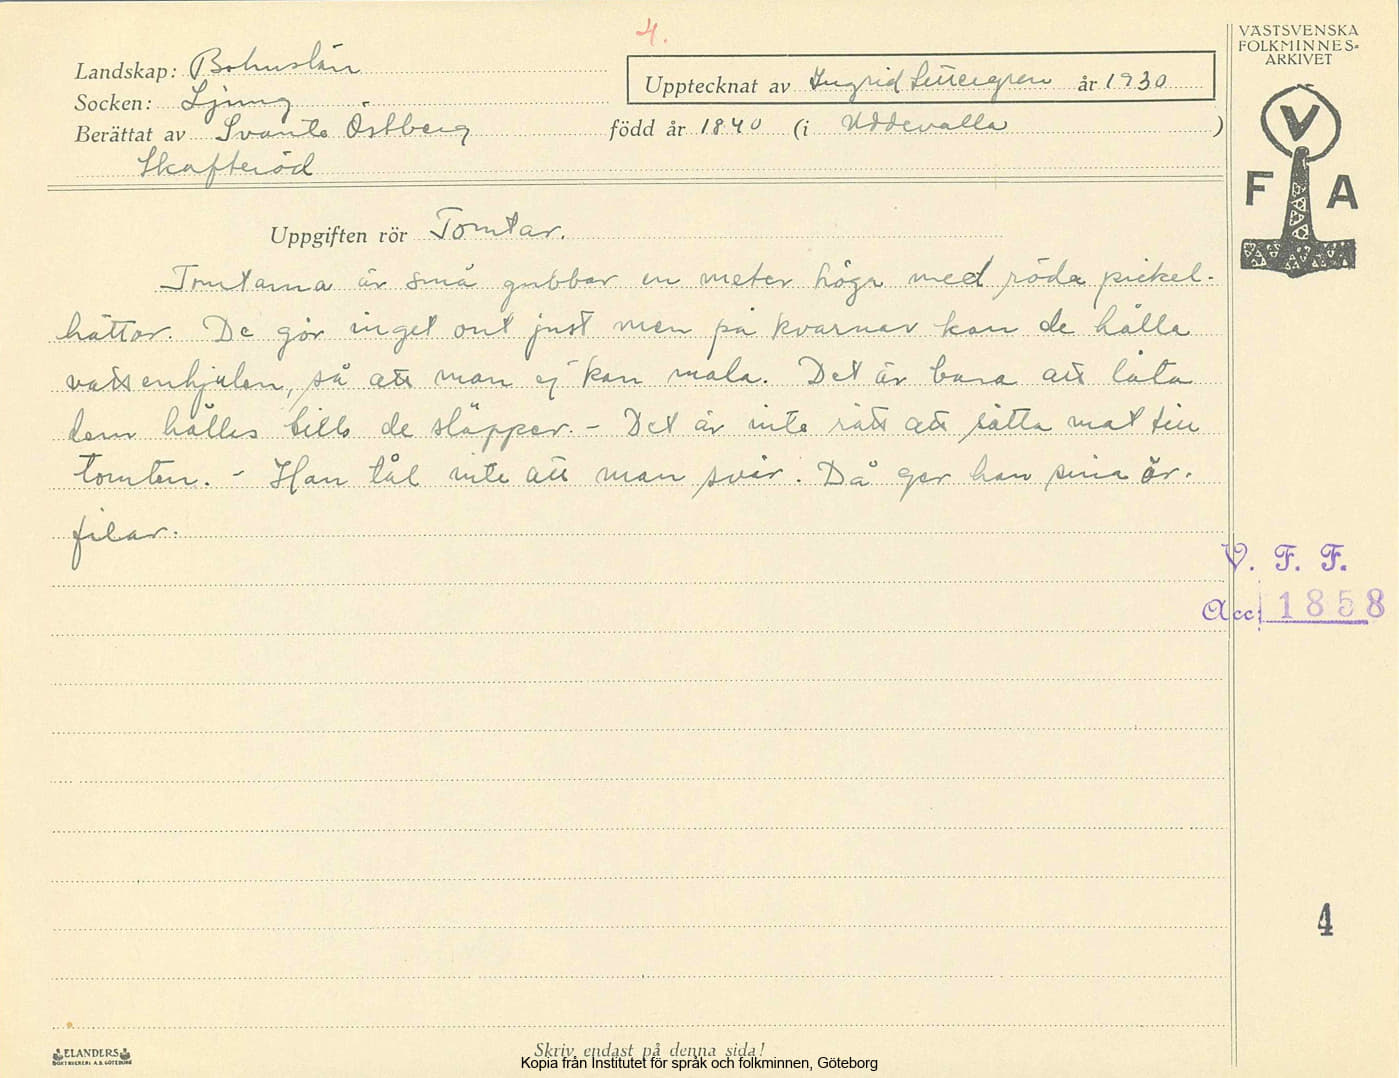 4.
VÄSTSVENSKA
FOLKMINNES-
ARKIVET
Landskap: Bohuslän
Upptecknat av Ingrid år 1930
Socken: Ljung
Berättat av Svante Östberg född år 1840 (i Uddevalla )
Skafteröd
V
F A
Uppgiften rör Tomtar.
Tomtarna är små gubbar en meter höga med röda pickel-
hättor. De gör inget ont just men på kvarnar kan de hålla
vattenhjulen, så att man ej kan mala. Det är bara att låta
dem hålles tills de släpper. – Det är inte rätt att sätta mat till
tomten. – Han tål inte att man svär. Då ger han sina ör-
filar.
V. F. F.
Acc: 1858
4
ELANDERS
BOKTRYCKERI A.B. GÖTEBORG
Skriv endast på denna sida!
Kopia från Institutet för språk och folkminnen, Göteborg